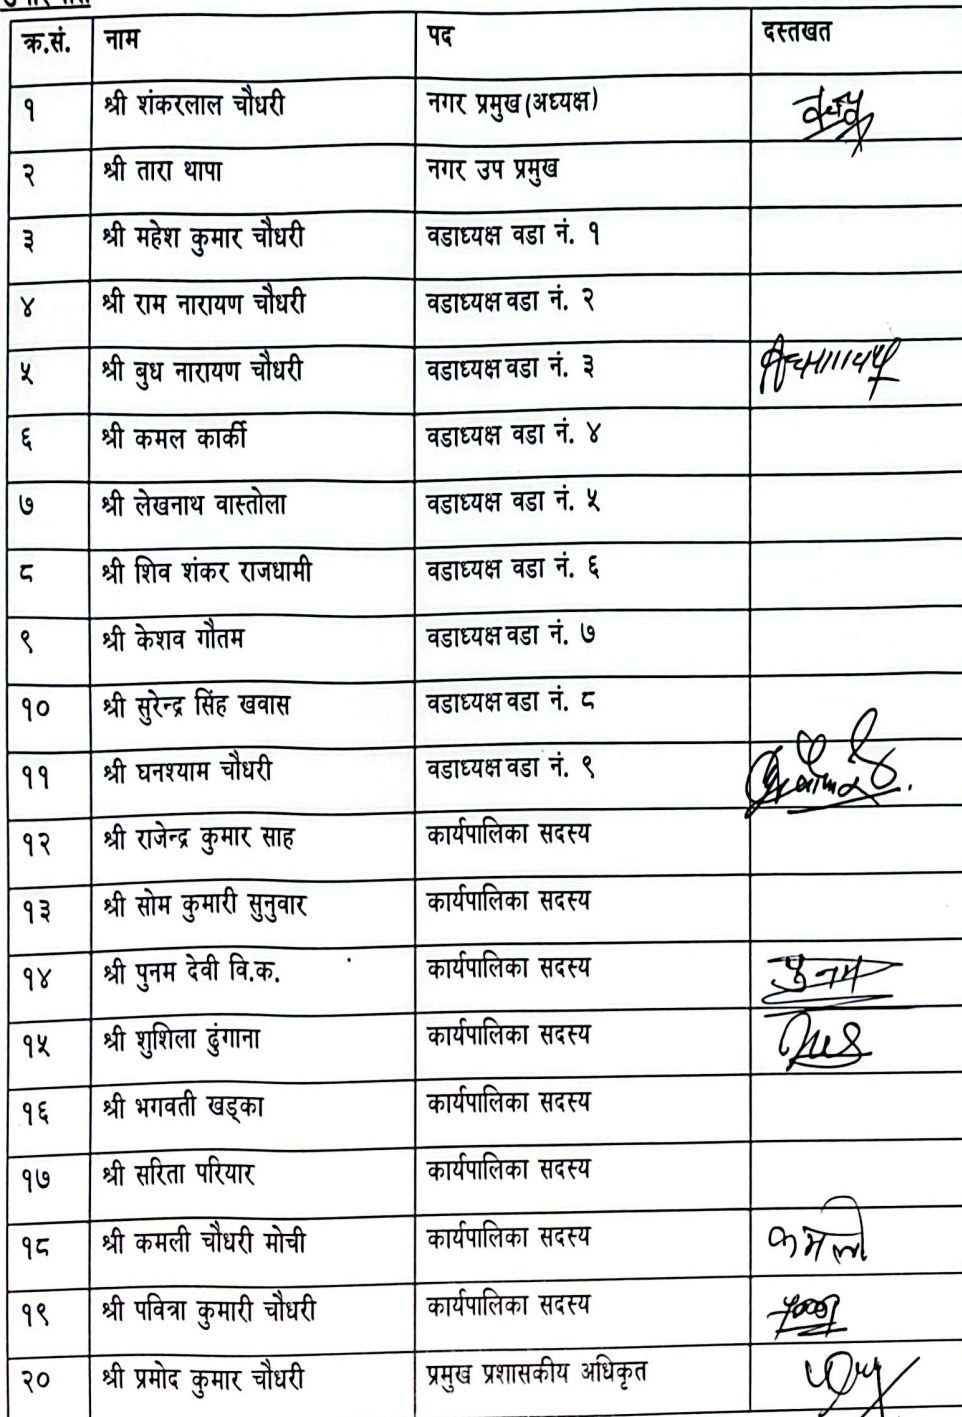 क्र.सं. नाम पद दस्तखत
१ श्री शंकरलाल चौधरी नगर प्रमुख(अध्यक्ष)
२ श्री तारा थापा नगर उप प्रमुख
३ श्री महेश कुमार चौधरी वडाध्यक्ष वडा नं. १
४ श्री राम नारायण चौधरी वडाध्यक्ष वडा नं. २
५ श्री बुध नारायण चौधरी वडाध्यक्ष वडा नं. ३
६ श्री कमल कार्की वडाध्यक्ष वडा नं. ४
७ श्री लेखनाथ वास्तोला वडाध्यक्ष वडा नं. ५
८ श्री शिव शंकर राजधामी वडाध्यक्ष वडा नं. ६
९ श्री केशव गौतम वडाध्यक्ष वडा नं. ७
१० श्री सुरेन्द्र सिंह खवास वडाध्यक्ष वडा नं. ८
११ श्री घनश्याम चौधरी वडाध्यक्ष वडा नं. ९
१२ श्री राजेन्द्र कुमार साह कार्यपालिका सदस्य
१३ श्री सोम कुमारी सुनुवार कार्यपालिका सदस्य
१४ श्री पुनम देवी वि.क. कार्यपालिका सदस्य पुनम
१५ श्री शुशिला ढुंगाना कार्यपालिका सदस्य
१६ श्री भगवती खड्का कार्यपालिका सदस्य
१७ श्री सरिता परियार कार्यपालिका सदस्य
१८ श्री कमली चौधरी मोची कार्यपालिका सदस्य कमली
१९ श्री पवित्रा कुमारी चौधरी कार्यपालिका सदस्य
२० श्री प्रमोद कुमार चौधरी प्रमुख प्रशासकीय अधिकृत